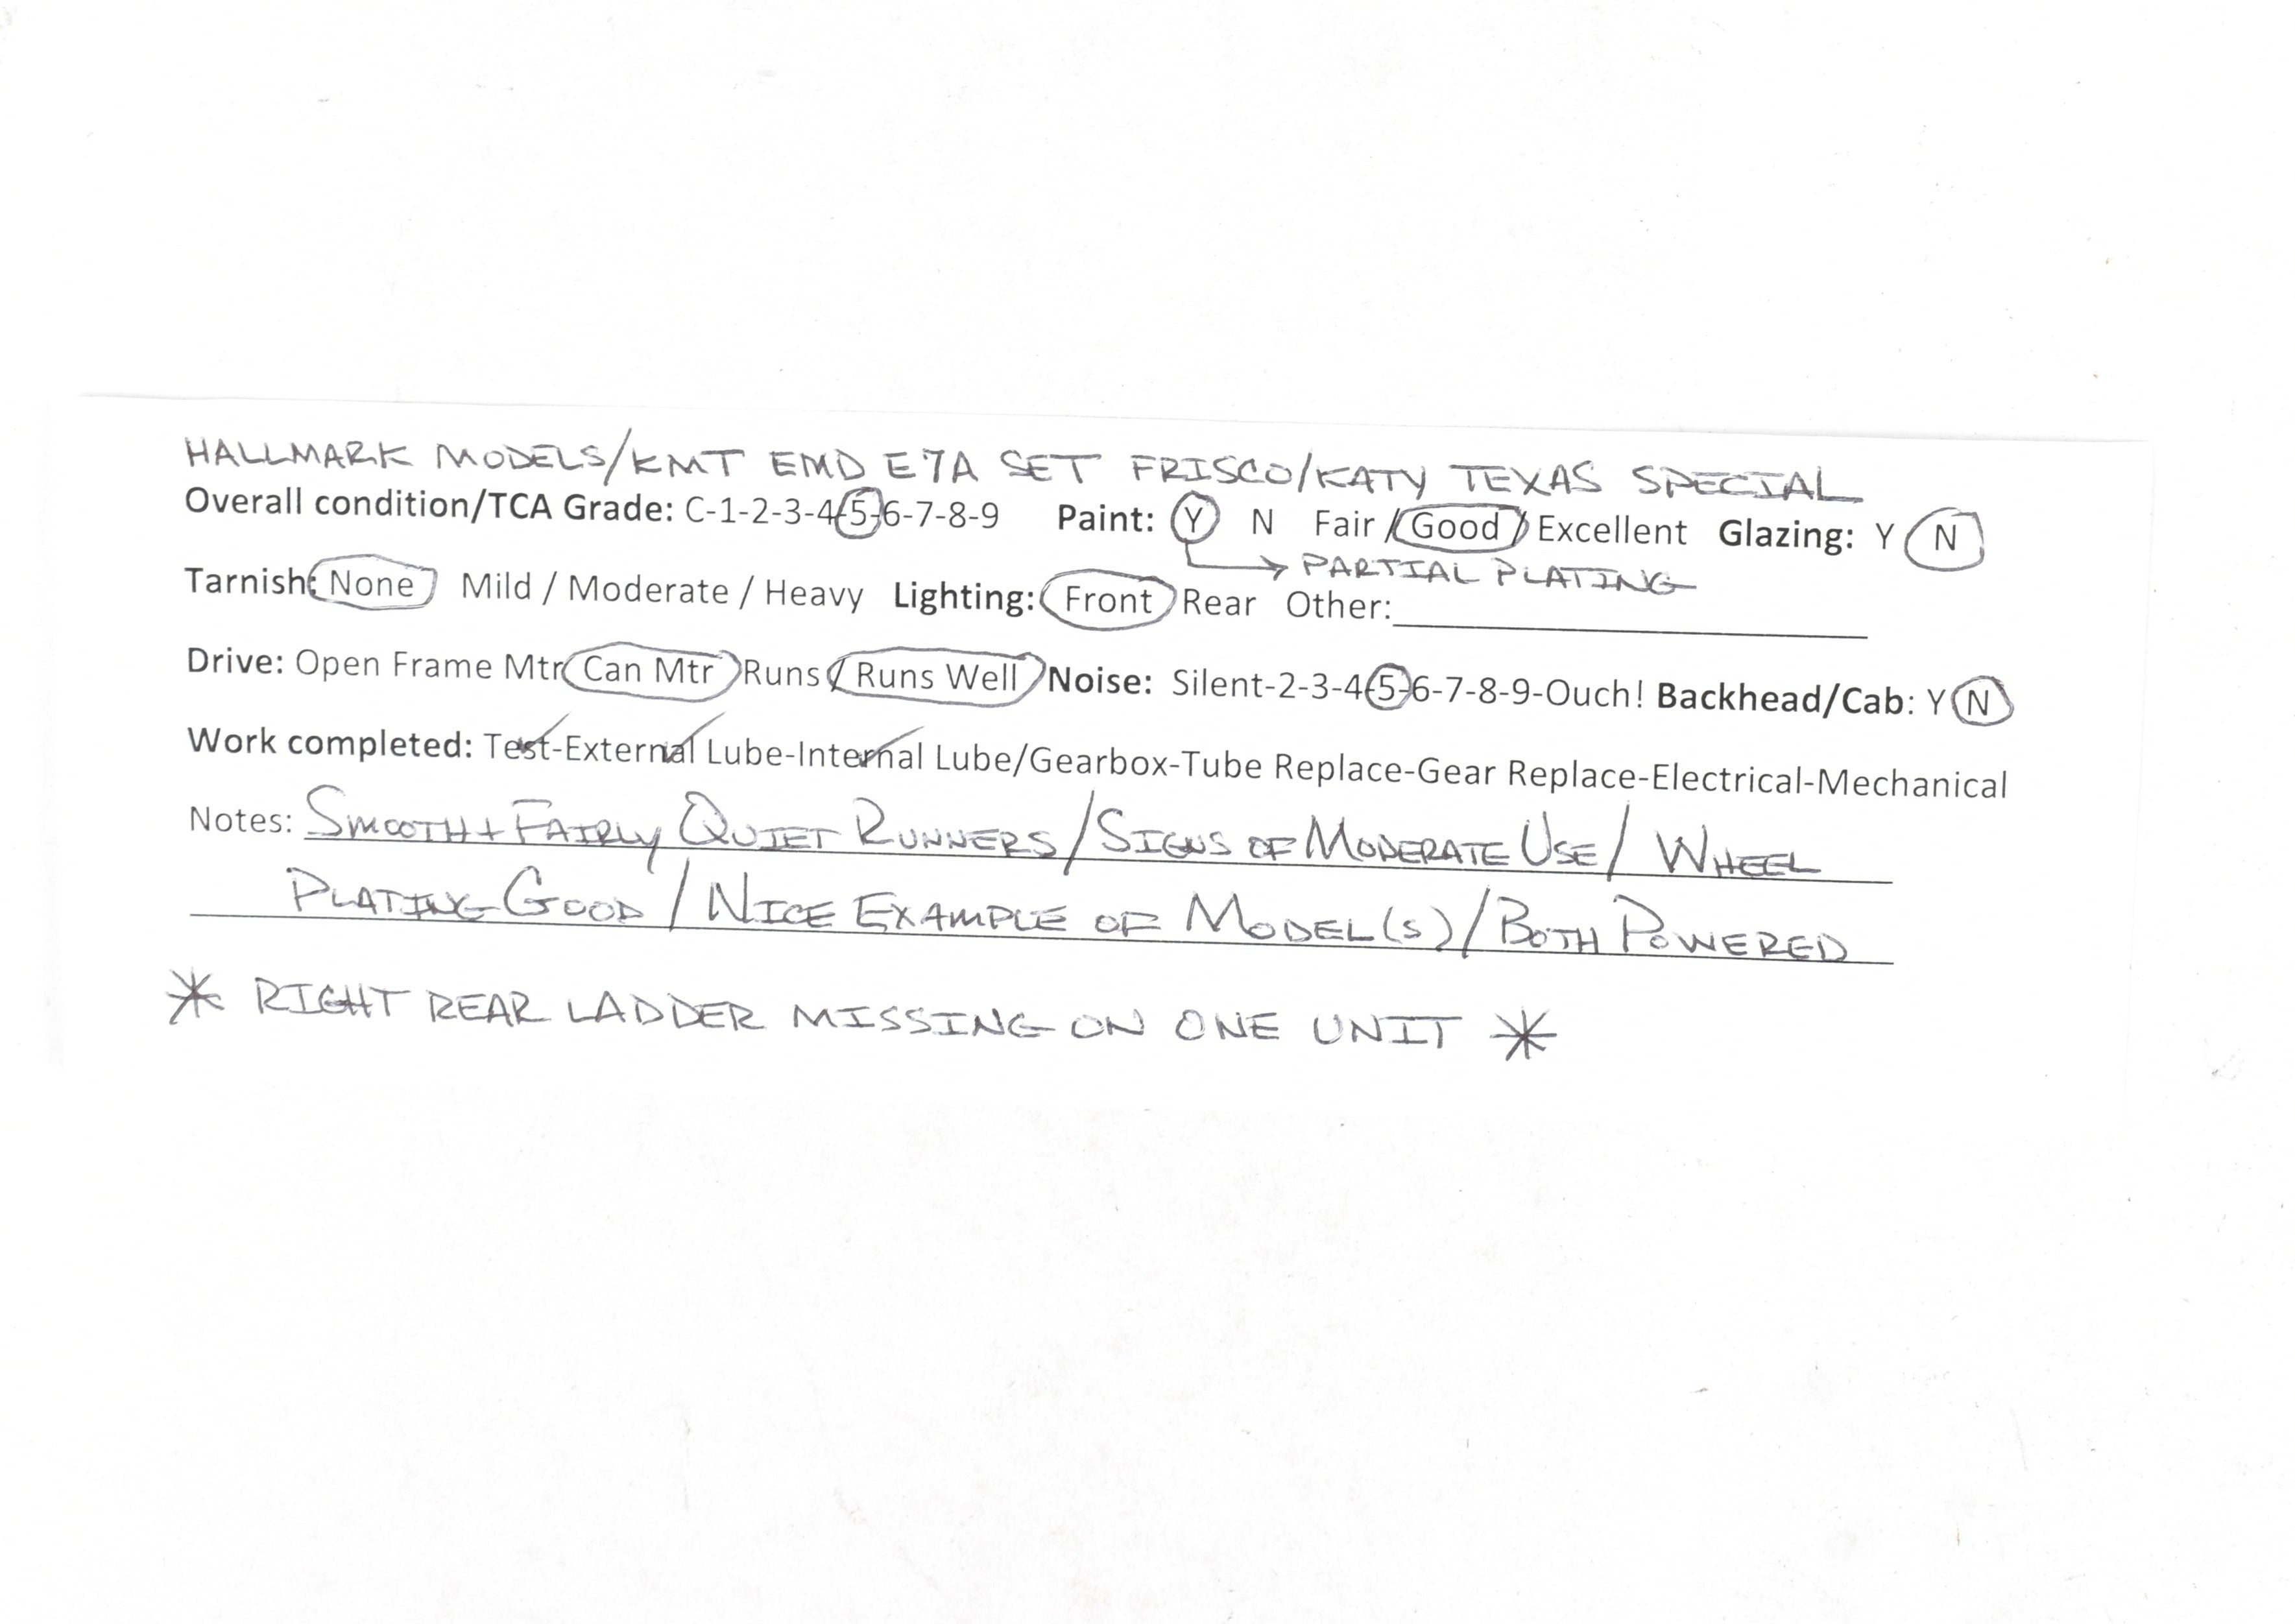 HALLMARK MODELS/KMT EMD E7A SET FRISCO/KATY TEXAS SPECIAL
Overall condition/TCA Grade: C-1-2-3-4-5-6-7-8-9 Paint: Y N Fair / Good / Excellent Glazing: Y N
→ PARTIAL PLATING
Tarnish: None Mild / Moderate / Heavy Lighting: Front Rear Other:
Drive: Open Frame Mtr Can Mtr Runs / Runs Well Noise: Silent-2-3-4-5-6-7-8-9-Ouch! Backhead/Cab: Y N
Work completed: Test-External Lube-Internal Lube/Gearbox-Tube Replace-Gear Replace-Electrical-Mechanical
Notes: SMOOTH + FAIRLY QUIET RUNNERS/SIGNS OF MODERATE USE/ WHEEL
PLATING GOOD / NICE EXAMPLE OF MODEL(S)/BOTH POWERED
* RIGHT REAR LADDER MISSING ON ONE UNIT *